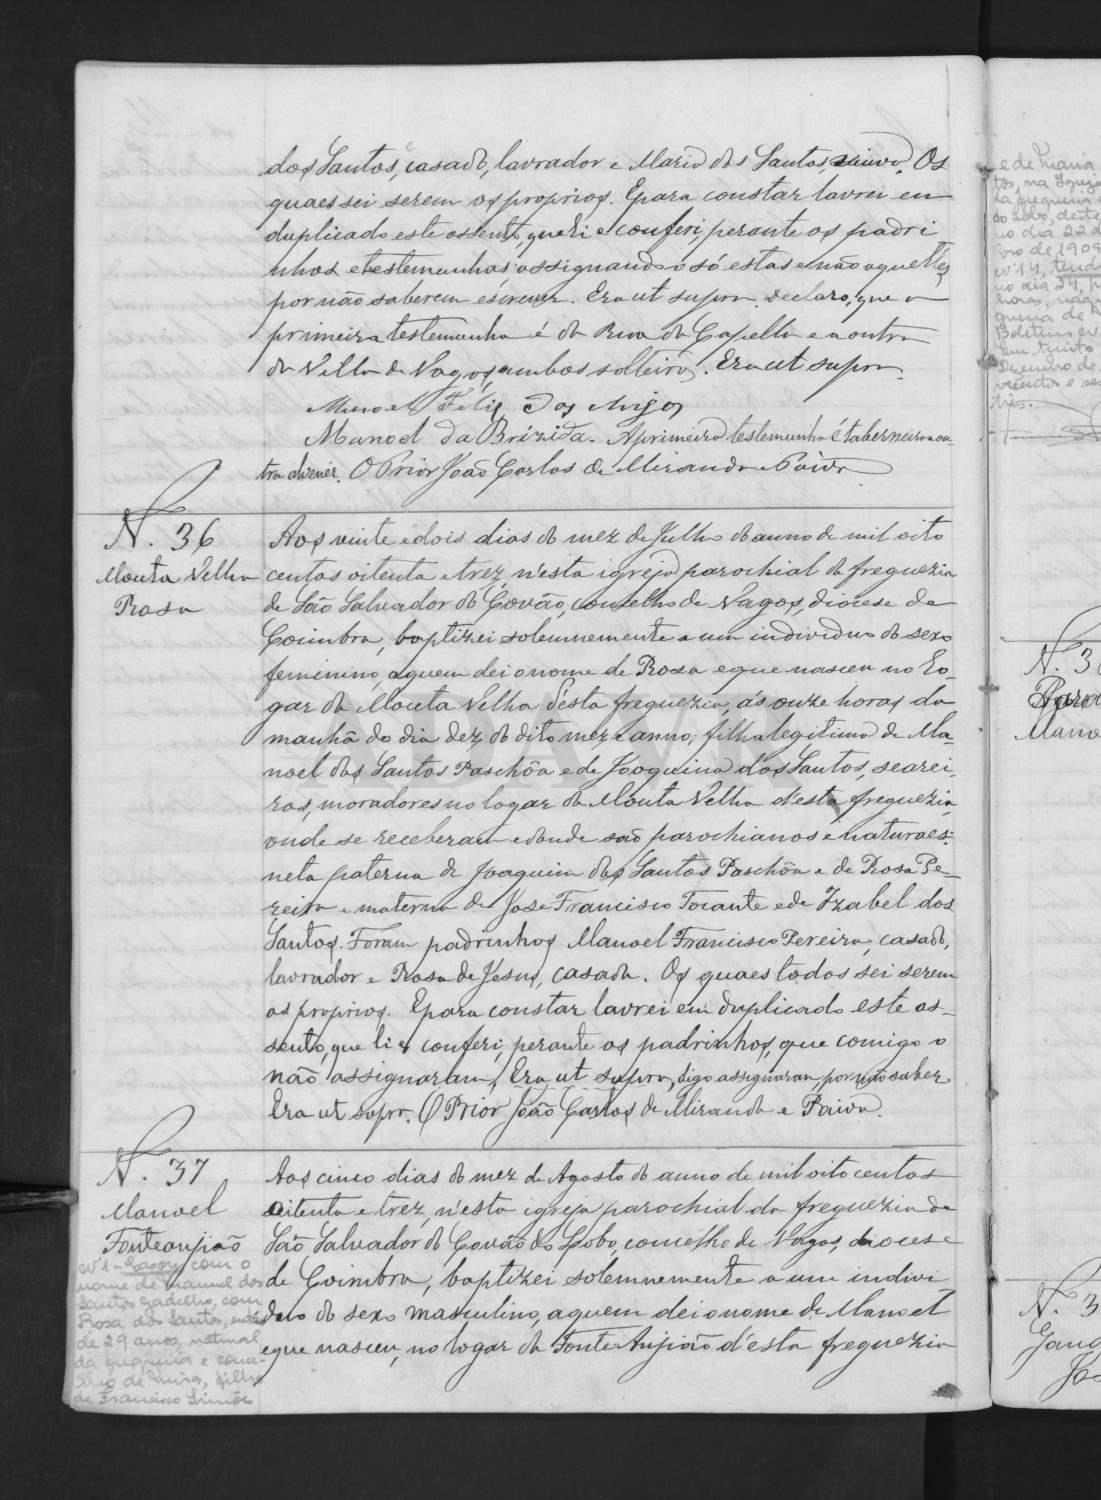 dos Santos, casado, lavrador e Maria dos Santos, viuva. Os
quaes sei serem os proprios. E para constar lavrei em
duplicado este assento, que li e conferi, perante os padri
nhos e testemunhas, assignando só estas e não aquelles,
por não saberem escrever. Era ut supra. declaro, que a
primeira testemunha é da Rua da Capella e a outra
da Villa de Vagos, ambos solteiros. Era ut supra.
Manoel Felix dos Anjos
Manoel da Brizida. A primeira testemunha é taberneiro a ou-
tra O Prior João Carlos de Miranda e Paiva
N. 36
Mouta Velha
Rosa
Aos vinte e dois dias do mez de Julho do anno de mil oito
centos oitenta e trez, n'esta igreja parochial da freguezia
de São Salvador do Covão, concelho de Vagos, diocese de
Coimbra, baptizei solemnemente a um individuo do sexo
feminino, a quem dei o nome de Rosa e que nasceu no lo-
gar da Mouta Velha d'esta freguezia, ás onze horas da
manhã do dia dez do dito mez e anno; filha legitima de Ma-
noel dos Santos Paschôa e de Joaquina dos Santos, searei-
ros, moradores no logar da Mouta Velha d'esta freguezia,
onde se receberam e donde são parochianos e naturaes:
neta paterna de Joaquim dos Santos Paschôa e de Rosa Pe-
reira e materna de José Francisco Tocante e de Izabel dos
Santos. Foram padrinhos Manoel Francisco Pereira, casado,
lavrador e Rosa de Jesus, casada. Os quaes todos sei serem
os proprios. E para constar lavrei em duplicado este as-
sento, que li e conferi, perante os padrinhos, que comigo o
não assignaram, Era ut supra, digo assignaram, por não saber.
Era ut supra. O Prior João Carlos de Miranda e Paiva.
N. 37
Manoel
Fonteanjião
Nº 1 - Casou com o
nome de Manuel dos
Santos Gadelho, com
Rosa dos Santos,
de 29 anos, natural
da freguesia e conce-
lho de Mira, filha
de Francisco Simões
Aos cinco dias do mez de Agosto do anno de mil oito centos
oitenta e trez, n'esta igreja parochial da freguezia de
São Salvador do Covão do Lobo, concelho de Vagos, diocese
de Coimbra, baptizei solemnemente a um indivi
duo do sexo masculino, a quem dei o nome de Manoel
e que nasceu, no logar da Fonte Anjião d'esta freguezia
e de Maria
na Igreja
da freguesia
do Lobo, deste
no dia 22 d
bro de 1909
Nº 14, tend
no dia 24, p
horas,
Boletim
Dezembro de
N. 3
Mano
N. 3